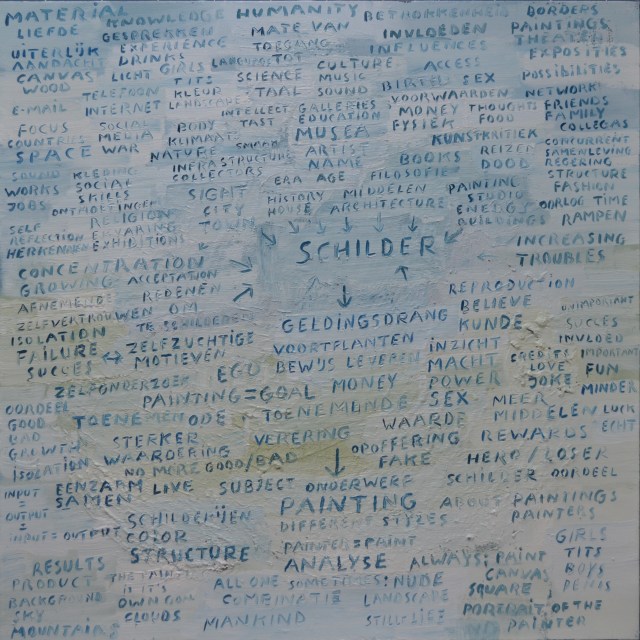 MATERIAL KNOWLEDGE HUMANITY BETROKKENHEID BORDERS
LIEFDE GESPREKKEN MATE VAN INVLOEDEN PAINTINGS
UITERLIJK EXPERIENCE TOEGANG INFLUENCES THEATER
AANDACHT DRINKS TOT CULTURE ACCESS EXPOSITIES
CANVAS LICHT GIRLS SCIENCE MUSIC BIRTH SEX POSSIBILITIES
WOOD TITS TAAL SOUND
TELEFOON KLEUR VOORWAARDEN NETWORK
E-MAIL INTERNET LANDSCAPE INTELLECT GALLERIES MONEY THOUGHTS FRIENDS
FOCUS SOCIAL BODY TAST EDUCATION FYSIEK FOOD FAMILY
COUNTRIES MEDIA KLIMAAT MUSEA KUNSTKRITIEK COLLEGAS
SPACE WAR NATURE ARTIST REIZEN CONCURRENT
INFRASTRUCTURE NAME BOOKS DOOD SAMENLEVING
KLEDING COLLECTORS REGERING
WORKS SOCIAL ERA AGE FILOSOFIE STRUCTURE
JOBS SKILLS SIGHT HISTORY MIDDELEN PAINTING FASHION
ONTWIKKELINGEN CITY HOUSE ARCHITECTURE STUDIO OORLOG TIME
SELF RELIGION TOWN ENERGY RAMPEN
REFLECTION ERVARING BUILDINGS
HERKENNING EXHIBITIONS SCHILDER INCREASING
CONCENTRATION TROUBLES
GROWING ACCEPTATION
AENEMENDE REDENEN REPRODUCTION
ZELFVERTROUWEN OM BELIEVE UNIMPORTANT
ISOLATION TE SCHILDEREN GELDINGSDRANG KUNDE SUCCES
FAILURE ↔ ZELFZUCHTIGE VOORTPLANTEN INZICHT INVLOED
SUCCES MOTIEVEN BEWIJS LEVEREN MACHT CREDITS IMPORTANT
ZELFONDERZOEK EGO MONEY POWER LOVE FUN
PAINTING=GOAL JOKE MINDER
OORDEEL TOENEMENDE TOENEMENDE SEX MEER
GOOD WAARDE MIDDELEN LUCK
BAD STERKER VERERING OPOFFERING REWARDS ECHT
WAARDERING
ISOLATION NO MORE GOOD/BAD FAKE HERO/LOSER
EENZAAM LIVE SUBJECT ONDERWERP SCHILDER OORDEEL
INPUT SAMEN PAINTING ABOUT PAINTINGS
=
OUTPUT SCHILDERIJEN DIFFERENT STYLES PAINTERS
=
INPUT=OUTPUT COLOR PAINTER=PAINT GIRLS
STRUCTURE ANALYSE ALWAYS: PAINT TITS
RESULTS CANVAS BOYS
PRODUCT ALL ONE SOMETIMES: NUDE SQUARE PENIS
BACKGROUND OWN GOAL COMBINATIE LANDSCAPE
SKY CLOUDS PORTRAIT OF THE
MOUNTAINS MANKIND STILLIFE PAINTER